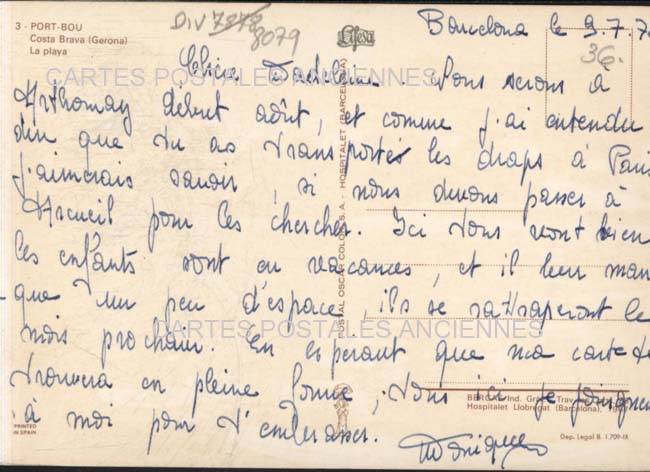 3 - PORT-BOU
Costa Brava (Gerona)
La playa
DIV 7878
8079
Lifesa
36.
Barcelona le 9.7.7
CARTES POSTALES ANCIENNES
Chère Nous serons à
Arthomay début août, et comme j'ai entendu
dire que tu as transportés les draps à Paris
j'aimerais savoir, si nous devons passer à
Arcueil pour les chercher. Ici tous vont bien
les enfants sont en vacances, et il leur man
que un peu d'espace, ils se rattraperont le
mois prochain. En esperant que ma carte te
trouvera en pleine forme, tous ici se joignent
à moi pour t'embrasser.
CARTES POSTALES ANCIENNES
POSTAL OSCAR COLOR, S. A. - HOSPITALET (BARCELONA)
PRINTED
IN SPAIN
BERGAS Ind. Gráf.
Hospitalet Llobregat (Barcelona),
Dep. Legal B. 1.709-IX